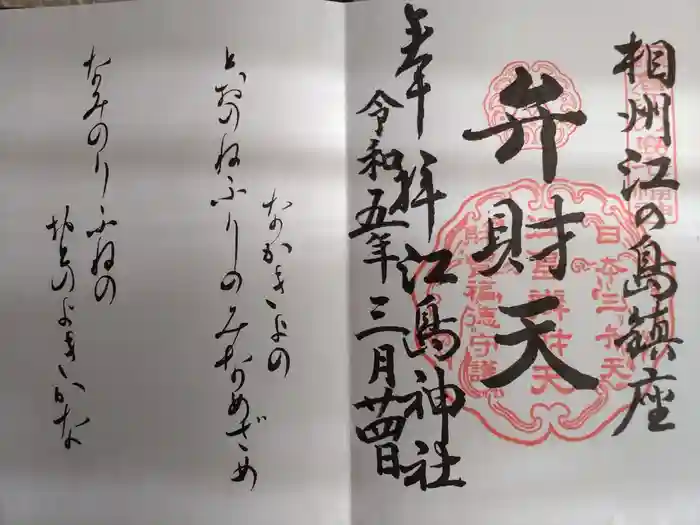 相州江の島鎮座
弁財天
奉拝 江島神社
令和五年三月廿四日
日本三弁天
福徳守護
なかきよの
とおのねふりのみなめざめ
なみのりふねの
おとのよきかな